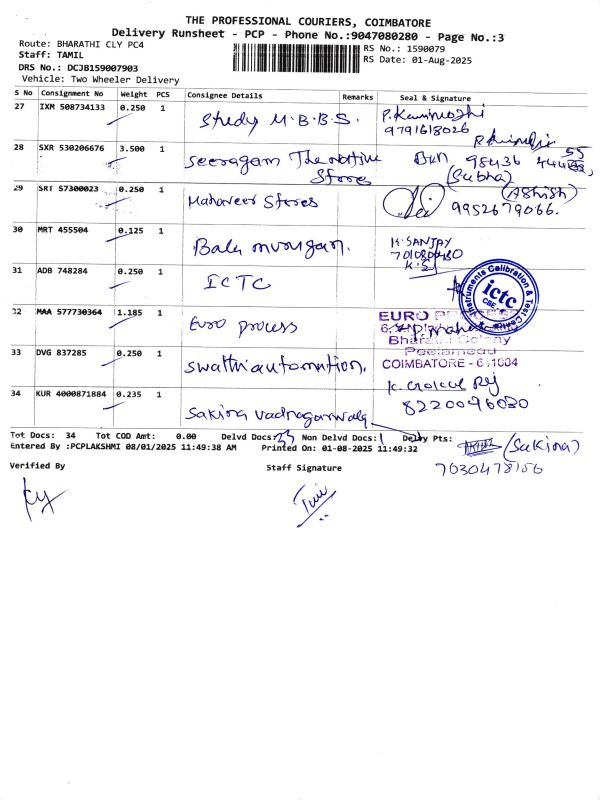 THE PROFESSIONAL COURIERS, COIMBATORE
Delivery Runsheet - PCP - Phone No.:9047080280 - Page No.:3
Route: BHARATHI CLY PC4
RS No.: 1590079
Staff: TAMIL
RS Date: 01-Aug-2025
DRS No.: DCJB159007903
Vehicle: Two Wheeler Delivery
S No Consignment No Weight PCS Consignee Details Remarks Seal & Signature
27 IXM 508734133 0.250 1 Study M.B.B.S.
9791618026
28 SXR 530206676 3.500 1 Seeragam The native Stores
98436
(Subha)
29 SRT 57300023 0.250 1 Mahaveer Stores
(Ashish)
9952679066.
30 MRT 455504 0.125 1 Bala murugan.
K. SANJAY
31 ADB 748284 0.250 1 ICTC
Instruments Calibration & Test Centre
ictc
CBE
32 MAA 577730364 1.185 1 Euro process
EURO
Bharathi Colony
Peelamedu
COIMBATORE - 641004
33 DVG 837285 0.250 1 Swathi automation.
34 KUR 4000871884 0.235 1 Sakina vadnagarwala
8220096030
Tot Docs: 34 Tot COD Amt: 0.00 Delvd Docs: 33 Non Delvd Docs: 1 Delay Pts:
(Sakina)
Entered By :PCPLAKSHMI 08/01/2025 11:49:38 AM Printed On: 01-08-2025 11:49:32
7030478156
Verified By Staff Signature